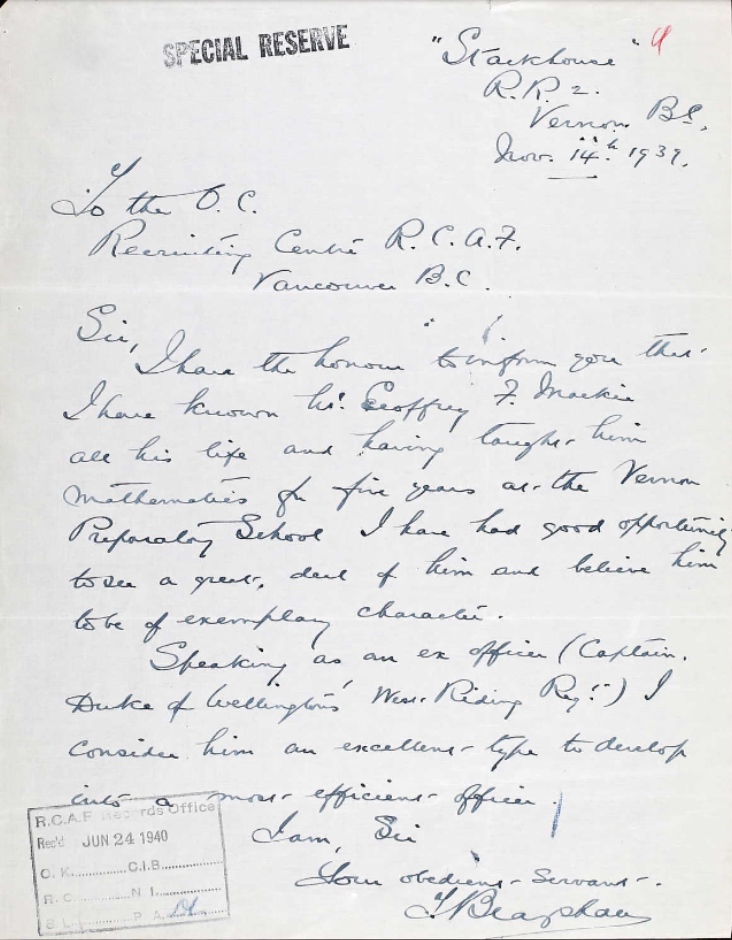 SPECIAL RESERVE
"Stackhouse" 4
R.R. 2.
Vernon BC.
Nov. 14th 1939.
To the O.C.
Recruiting Centre R.C.A.F.
Vancouver B.C.
Sir,
I have the honour to inform you that
I have known Mr. Geoffrey F. Mackie
all his life and having taught him
mathematics for five years at the Vernon
Preparatory School I have had good opportunity
to see a great deal of him and believe him
to be of exemplary character.
Speaking as an ex officer (Captain.
Duke of Wellington's West Riding Regt.) I
consider him an excellent type to develop
into a most efficient officer.
I am, Sir
Your obedient servant.
R.C.A.F Records Office
Rec'd JUN 24 1940
O. K. C.I.B.
R. C. N. I.
S. L. P. A.